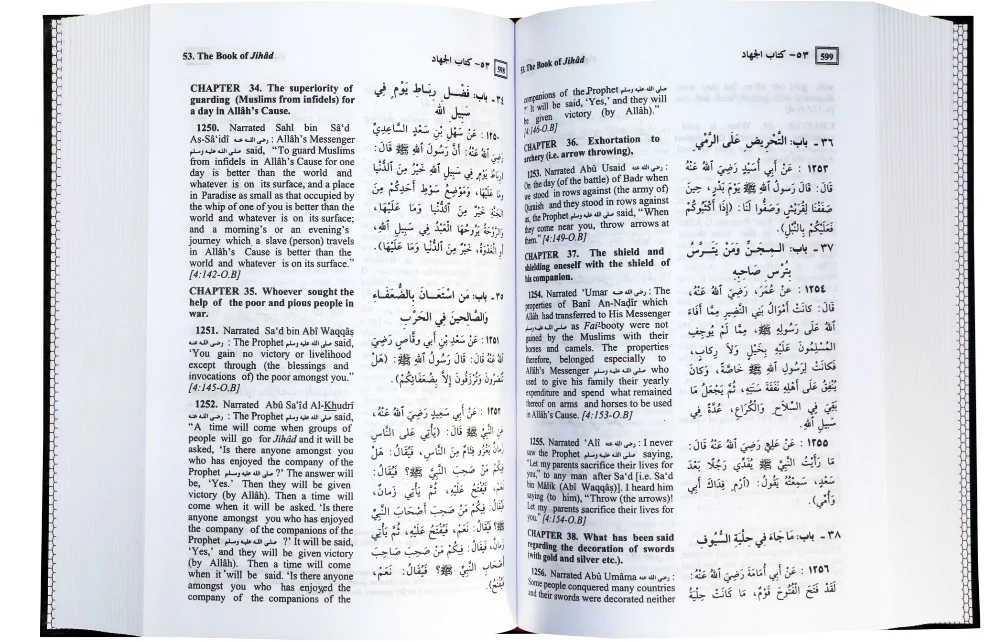 53. The Book of Jihâd
٥٣- كتاب الجهاد
598
CHAPTER 34. The superiority of
guarding (Muslims from infidels) for
a day in Allâh's Cause.
1250. Narrated Sahl bin Sâ'd
As-Sâ'idî رضى الله عنه : Allâh's Messenger
صلى الله عليه وسلم said, "To guard Muslims
from infidels in Allâh's Cause for one
day is better than the world and
whatever is on its surface, and a place
in Paradise as small as that occupied by
the whip of one of you is better than the
world and whatever is on its surface;
and a morning's or an evening's
journey which a slave (person) travels
in Allâh's Cause is better than the
world and whatever is on its surface."
[4:142-O.B]
CHAPTER 35. Whoever sought the
help of the poor and pious people in
war.
1251. Narrated Sa'd bin Abî Waqqâs
رضى الله عنه : The Prophet صلى الله عليه وسلم said,
'You gain no victory or livelihood
except through (the blessings and
invocations of) the poor amongst you."
[4:145-O.B]
1252. Narrated Abû Sa'îd Al-Khudrî
رضى الله عنه : The Prophet صلى الله عليه وسلم said,
"A time will come when groups of
people will go for Jihâd and it will be
asked, 'Is there anyone amongst you
who has enjoyed the company of the
Prophet صلى الله عليه وسلم ?' The answer will
be, 'Yes.' Then they will be given
victory (by Allâh). Then a time will
come when it will be asked. 'Is there
anyone amongst you who has enjoyed
the company of the companions of the
Prophet صلى الله عليه وسلم ?' It will be said,
'Yes,' and they will be given victory
(by Allâh). Then a time will come
when it will be said. 'Is there anyone
amongst you who has enjoyed the
company of the companions of the
٣٤ - باب: فَضْلِ رِبَاطِ يَوْمٍ فِي
سَبِيلِ اللهِ
١٢٥٠: عَنْ سَهْلِ بْنِ سَعْدٍ السَّاعِدِيِّ
رَضِيَ اللهُ عَنْهُ: أَنَّ رَسُولَ اللهِ ﷺ قَالَ:
(رِبَاطُ يَوْمٍ فِي سَبِيلِ اللهِ خَيْرٌ مِنَ الدُّنْيَا
وَمَا عَلَيْهَا، وَمَوْضِعُ سَوْطِ أَحَدِكُمْ مِنَ
الجَنَّةِ خَيْرٌ مِنَ الدُّنْيَا وَمَا عَلَيْهَا،
وَالرَّوْحَةُ يَرُوحُهَا الْعَبْدُ فِي سَبِيلِ اللهِ،
أَوِ الْغَدْوَةُ، خَيْرٌ مِنَ الدُّنْيَا وَمَا عَلَيْهَا).
٣٥ - باب: مَنِ اسْتَعَانَ بِالضُّعَفَاءِ
وَالصَّالِحِينَ فِي الحَرْبِ
١٢٥١: عَنْ سَعْدِ بْنِ أَبِي وَقَّاصٍ رَضِيَ
اللهُ عَنْهُ قَالَ: قَالَ رَسُولُ اللهِ ﷺ: (هَلْ
تُنْصَرُونَ وَتُرْزَقُونَ إِلَّا بِضُعَفَائِكُمْ).
١٢٥٢: عَنْ أَبِي سَعِيدٍ رَضِيَ اللهُ عَنْهُ،
عَنِ النَّبِيِّ ﷺ قَالَ: (يَأْتِي عَلَى النَّاسِ
زَمَانٌ يَغْزُو فِئَامٌ مِنَ النَّاسِ، فَيُقَالُ: هَلْ
فِيكُمْ مَنْ صَحِبَ النَّبِيَّ ﷺ؟ فَيُقَالُ:
نَعَمْ، فَيُفْتَحُ عَلَيْهِ، ثُمَّ يَأْتِي زَمَانٌ،
فَيُقَالُ: فِيكُمْ مَنْ صَحِبَ أَصْحَابَ النَّبِيِّ
ﷺ؟ فَيُقَالُ: نَعَمْ، فَيُفْتَحُ عَلَيْهِ، ثُمَّ يَأْتِي
زَمَانٌ، فَيُقَالُ: فِيكُمْ مَنْ صَحِبَ صَاحِبَ
أَصْحَابِ النَّبِيِّ ﷺ؟ فَيُقَالُ: نَعَمْ،
فَيُفْتَحُ).
53. The Book of Jihâd
٥٣- كتاب الجهاد
599
companions of the Prophet صلى الله عليه وسلم
?' It will be said, 'Yes,' and they will
be given victory (by Allâh)."
[4:146-O.B]
CHAPTER 36. Exhortation to
archery (i.e. arrow throwing),
1253. Narrated Abû Usaid رضى الله عنه :
On the day (of the battle) of Badr when
we stood in rows against (the army of)
Quraish and they stood in rows against
us, the Prophet صلى الله عليه وسلم said, "When
they come near you, throw arrows at
them." [4:149-O.B]
CHAPTER 37. The shield and
shielding oneself with the shield of
his companion.
1254. Narrated 'Umar رضى الله عنه : The
properties of Banî An-Nadîr which
Allâh had transferred to His Messenger
صلى الله عليه وسلم as Fai'-booty were not
gained by the Muslims with their
horses and camels. The properties
therefore, belonged especially to
Allâh's Messenger صلى الله عليه وسلم who
used to give his family their yearly
expenditure and spend what remained
thereof on arms and horses to be used
in Allâh's Cause. [4:153-O.B]
1255. Narrated 'Alî رضى الله عنه : I never
saw the Prophet صلى الله عليه وسلم saying,
"Let my parents sacrifice their lives for
you," to any man after Sa'd [i.e. Sa'd
bin Mâlik (Abî Waqqâs)]. I heard him
saying (to him), "Throw (the arrows)!
Let my parents sacrifice their lives for
you." [4:154-O.B]
CHAPTER 38. What has been said
regarding the decoration of swords
(with gold and silver etc.).
1256. Narrated Abû Umâma رضى الله عنه :
Some people conquered many countries
and their swords were decorated neither
٣٦ - باب: التَّحْرِيضِ عَلَى الرَّمْيِ
١٢٥٣ : عَنْ أَبِي أُسَيْدٍ رَضِيَ اللهُ عَنْهُ
قَالَ: قَالَ رَسُولُ اللهِ ﷺ يَوْمَ بَدْرٍ، حِينَ
صَفَفْنَا لِقُرَيْشٍ وَصَفُّوا لَنَا: (إِذَا أَكْثَبُوكُمْ
فَعَلَيْكُمْ بِالنَّبْلِ).
٣٧ - باب: المِجَنِّ وَمَنْ يَتَتَرَّسُ
بِتُرْسِ صَاحِبِهِ
١٢٥٤ : عَنْ عُمَرَ، رَضِيَ اللهُ عَنْهُ،
قَالَ: كَانَتْ أَمْوَالُ بَنِي النَّضِيرِ مِمَّا أَفَاءَ
اللهُ عَلَى رَسُولِهِ ﷺ، مِمَّا لَمْ يُوجِفِ
المُسْلِمُونَ عَلَيْهِ بِخَيْلٍ وَلاَ رِكَابٍ،
فَكَانَتْ لِرَسُولِ اللهِ ﷺ خَاصَّةً، وَكَانَ
يُنْفِقُ عَلَى أَهْلِهِ نَفَقَةَ سَنَتِهِ، ثُمَّ يَجْعَلُ مَا
بَقِيَ فِي السِّلاَحِ وَالْكُرَاعِ، عُدَّةً فِي
سَبِيلِ اللهِ.
١٢٥٥ : عَنْ عَلِيٍّ رَضِيَ اللهُ عَنْهُ قَالَ:
مَا رَأَيْتُ النَّبِيَّ ﷺ يُفَدِّي رَجُلًا بَعْدَ
سَعْدٍ، سَمِعْتُهُ يَقُولُ: (ارْمِ فِدَاكَ أَبِي
وَأُمِّي).
٣٨ - باب: مَا جَاءَ فِي حِلْيَةِ السُّيُوفِ
١٢٥٦ : عَنْ أَبِي أُمَامَةَ رَضِيَ اللهُ عَنْهُ:
لَقَدْ فَتَحَ الْفُتُوحَ قَوْمٌ، مَا كَانَتْ حِلْيَةُ